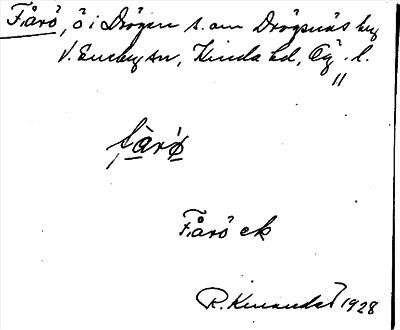 Fårö, ö i Drögen s. om Drögsnäs by
V. Eneby sn, Kinda hd, Ög. l.
fàrö
Fårö ek
R. 1928